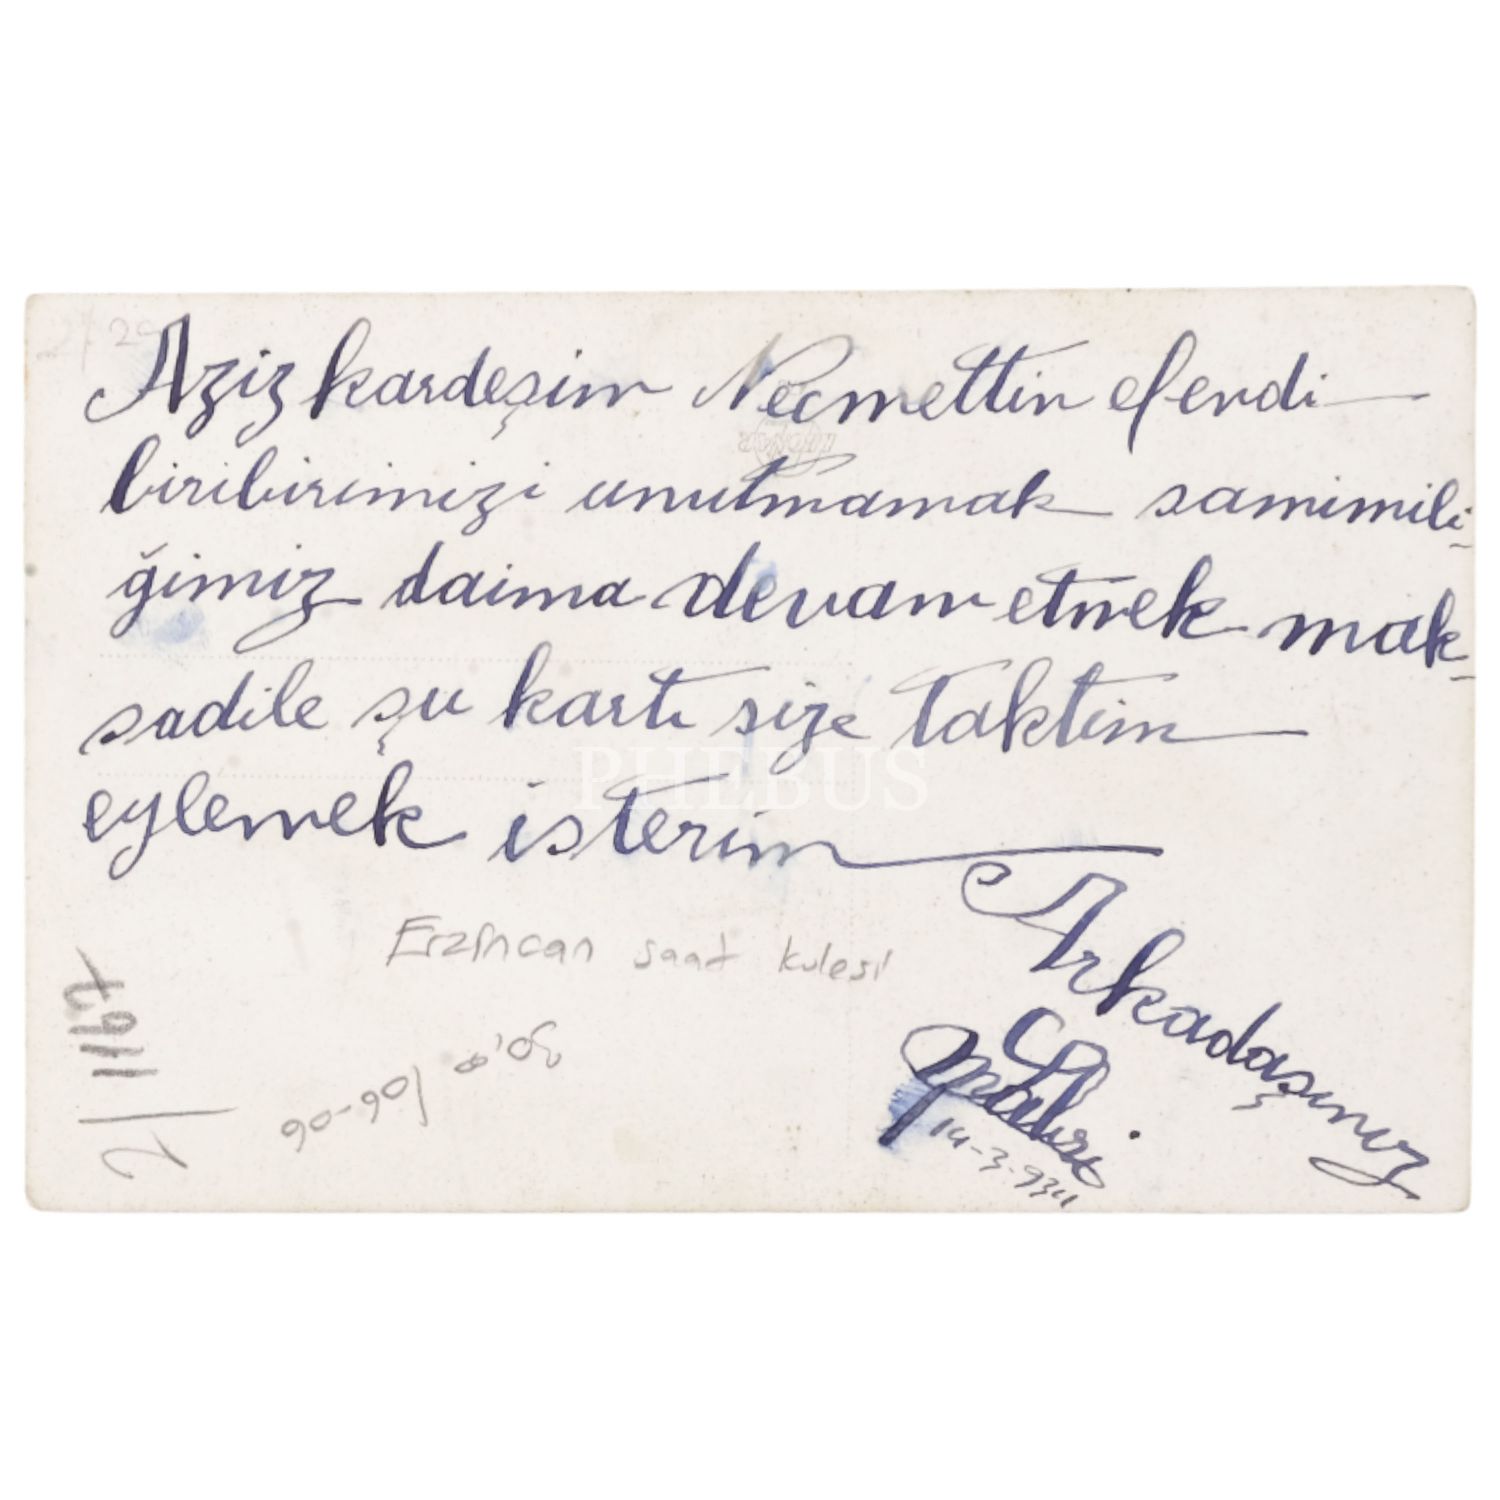 Aziz kardeşim Necmettin efendi
biribirimizi unutmamak samimili-
ğimiz daima devam etmek mak-
sadile şu kartı size taktim
eylemek isterim
Arkadaşınız
Sabri
14-3-934
Erzincan saat kulesi
PHEBUS